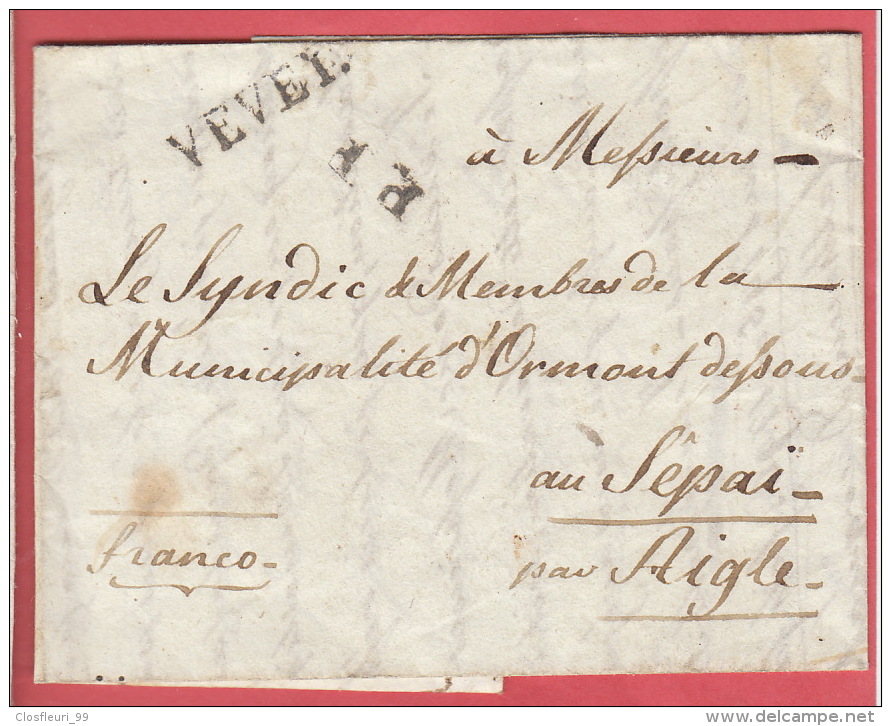 VEVEY.
P.P.
à Messieurs
Le Syndic & Membres de la
Municipalité d'Ormont dessous
au Sêpaï
franco
par Aigle
Closfleuri_99
delcampe.net